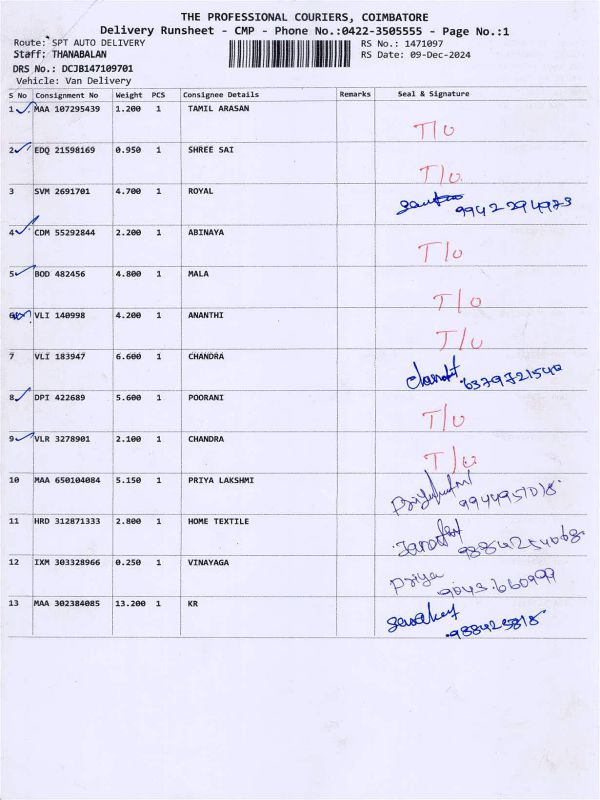 THE PROFESSIONAL COURIERS, COIMBATORE
Delivery Runsheet - CMP - Phone No.:0422-3505555 - Page No.:1
Route: SPT AUTO DELIVERY RS No.: 1471097
Staff: THANABALAN RS Date: 09-Dec-2024
DRS No.: DCJB147109701
Vehicle: Van Delivery
S No Consignment No Weight PCS Consignee Details Remarks Seal & Signature
1 MAA 107295439 1.200 1 TAMIL ARASAN
T/U
2 EDQ 21598169 0.950 1 SHREE SAI
T/U
3 SVM 2691701 4.700 1 ROYAL
9942294973
4 CDM 55292844 2.200 1 ABINAYA
T/U
5 BOD 482456 4.800 1 MALA
T/U
6 VLI 140998 4.200 1 ANANTHI
T/U
7 VLI 183947 6.600 1 CHANDRA
6379721540
8 DPI 422689 5.600 1 POORANI
T/U
9 VLR 3278901 2.100 1 CHANDRA
T/U
10 MAA 650104084 5.150 1 PRIYA LAKSHMI
9944957018
11 HRD 312871333 2.800 1 HOME TEXTILE
9884254068
12 IXM 303328966 0.250 1 VINAYAGA
Priya
9043.660997
13 MAA 302384085 13.200 1 KR